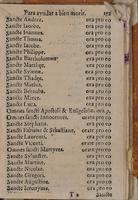 Para ayudar a bien morir.
Sancte Andrea, ora pro eo
Sancte Iacobe, ora pro eo
Sancte Ioannes, ora pro eo
Sancte Thoma, ora pro eo
Sancte Iacobe, ora pro eo
Sancte Philippe, ora pro eo
Sancte Bartholomæe, ora pro eo
Sancte Matthæe, ora pro eo
Sancte Simon, ora pro eo
Sancte Thadæe, ora pro eo
Sancte Mathia, ora pro eo
Sancte Barnaba, ora pro eo
Sancte Marce, ora pro eo
Sancte Luca, ora pro eo
Omnes sancti Apostoli & Euägelistæ, ora
Omnes sancti Innocentes, orate
Sancte Stephane, ora pro eo
Sancte Fabiane & Sebastiane, ora
Sancte Laurenti, ora pro eo
Sancte Vincenti, ora pro eo
Omnes sancti Martyres, orate
Sancte Syluester, ora pro eo
Sancte Martine, ora pro eo
Sancte Nicolae, ora pro eo
Sancte Gregori, ora pro eo
Sancte Augustine, ora pro eo
Sancte Ieronyme, ora pro eo
Sancte